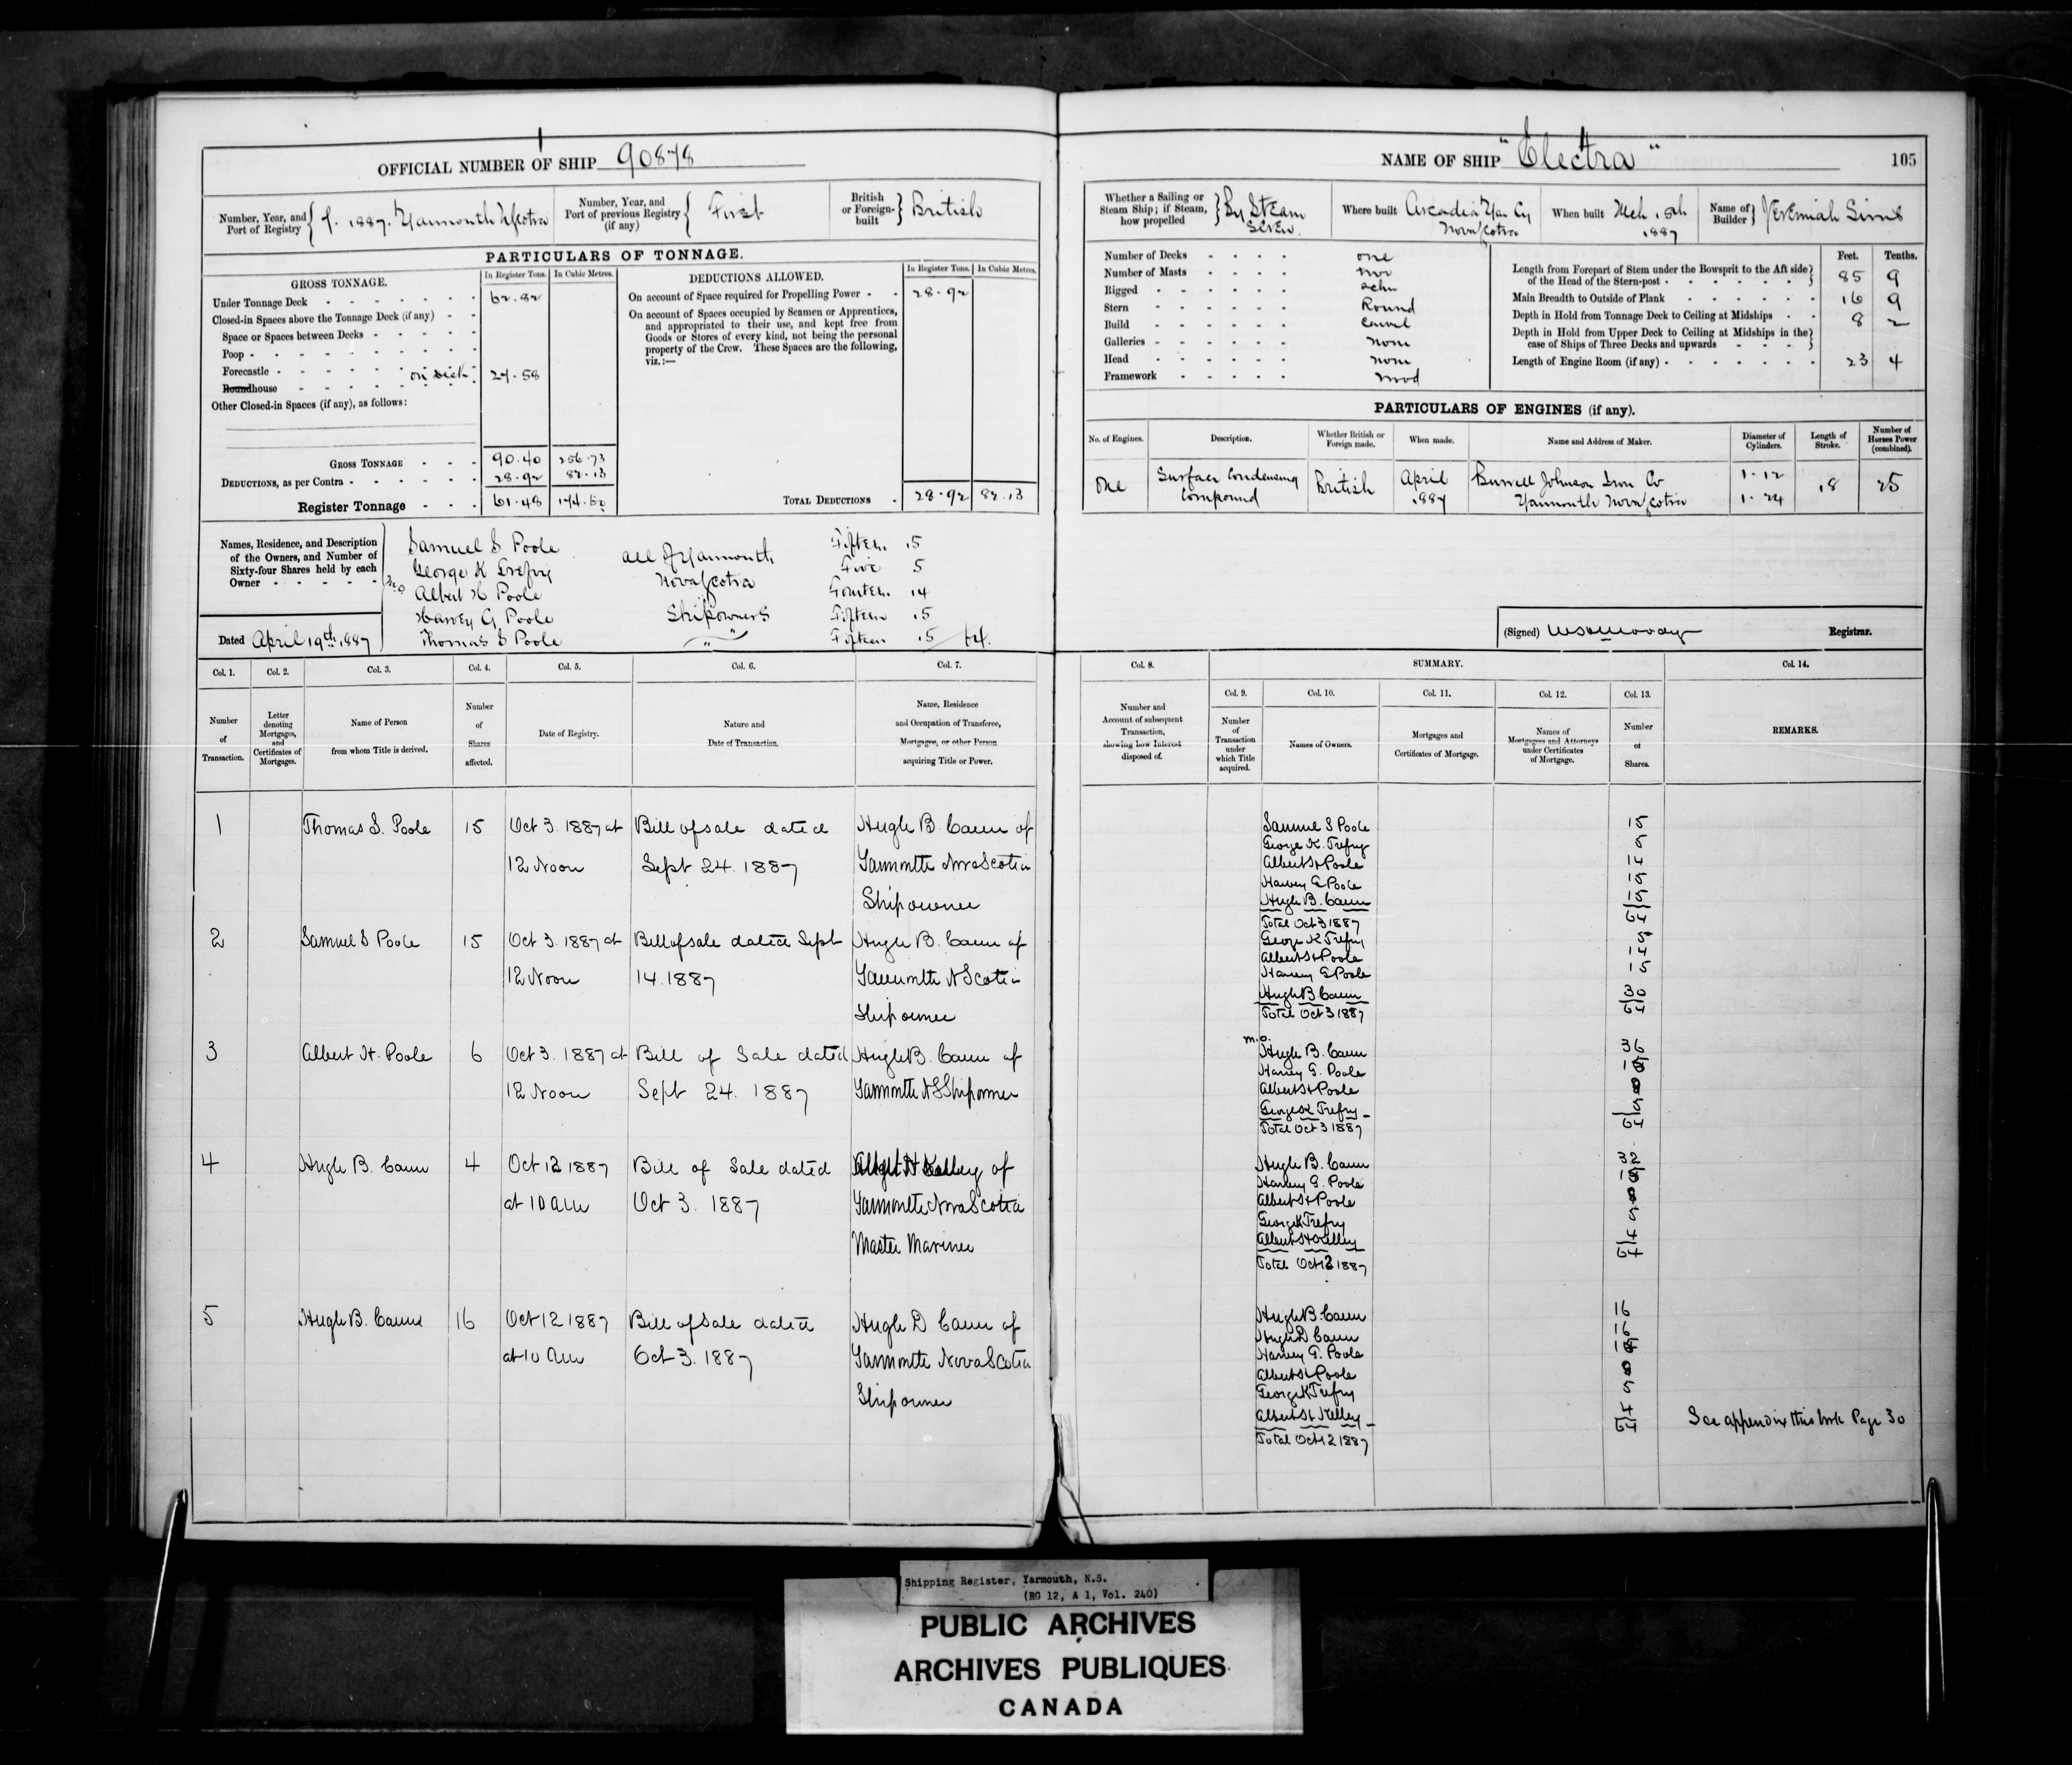 OFFICIAL NUMBER OF SHIP 90878
Number, Year, and Port of Registry 7. 1887. Yarmouth N Scotia
Number, Year, and Port of previous Registry (if any) First
British or Foreign-built British
PARTICULARS OF TONNAGE.
GROSS TONNAGE.
In Register Tons. In Cubic Metres.
Under Tonnage Deck 62.82
Closed-in Spaces above the Tonnage Deck (if any)
Space or Spaces between Decks
Poop
Forecastle
Roundhouse on deck 27.58
Other Closed-in Spaces (if any), as follows:
GROSS TONNAGE 90.40 256.73
DEDUCTIONS, as per Contra 28.92 82.13
Register Tonnage 61.48 174.60
DEDUCTIONS ALLOWED.
In Register Tons. In Cubic Metres.
On account of Space required for Propelling Power 28.92
On account of Spaces occupied by Seamen or Apprentices,
and appropriated to their use, and kept free from
Goods or Stores of every kind, not being the personal
property of the Crew. These Spaces are the following,
viz.:—
TOTAL DEDUCTIONS 28.92 82.13
Names, Residence, and Description
of the Owners, and Number of
Sixty-four Shares held by each
Owner
Samuel S Poole Fifteen 15
George K Trefry Five 5
m.o Albert H Poole Fourteen 14
Harvey G Poole Fifteen 15
Thomas S Poole Fifteen 15 64.
all of Yarmouth
Nova Scotia
Shipowners
Dated April 19th 1887
Col. 1. Col. 2. Col. 3. Col. 4. Col. 5. Col. 6. Col. 7.
Number of Transaction.
Letter denoting Mortgages, and Certificates of Mortgages.
Name of Person from whom Title is derived.
Number of Shares affected.
Date of Registry.
Nature and Date of Transaction.
Name, Residence and Occupation of Transferee, Mortgagee, or other Person acquiring Title or Power.
1 Thomas S. Poole 15 Oct 3. 1887 at Bill of sale dated Hugh B. Cann of
12 Noon Sept 24. 1887 Yarmouth Nova Scotia
Shipowner
2 Samuel S Poole 15 Oct 3. 1887 at Bill of sale dated Sept Hugh B. Cann of
12 Noon 14. 1887 Yarmouth N Scotia
Shipowner
3 Albert H. Poole 6 Oct 3. 1887 at Bill of Sale dated Hugh B. Cann of
12 Noon Sept 24. 1887 Yarmouth N S Shipowner
4 Hugh B. Cann 4 Oct 12 1887 Bill of Sale dated Albert H Kelley of
at 10 am Oct 3. 1887 Yarmouth Nova Scotia
Master Mariner
5 Hugh B. Cann 16 Oct 12 1887 Bill of Sale dated Hugh D Cann of
at 10 am Oct 3. 1887 Yarmouth Nova Scotia
Shipowner
NAME OF SHIP "Electra" 105
Whether a Sailing or Steam Ship; if Steam, how propelled By Steam Screw.
Where built Arcadia Yar Cy Nova Scotia
When built Mch 15th 1887
Name of Builder Jeremiah Sims
Number of Decks one
Number of Masts two
Rigged schr
Stern Round
Build Carvel
Galleries none
Head none
Framework wood
Feet. Tenths.
Length from Forepart of Stem under the Bowsprit to the Aft side of the Head of the Stern-post 85 9
Main Breadth to Outside of Plank 16 9
Depth in Hold from Tonnage Deck to Ceiling at Midships 8 2
Depth in Hold from Upper Deck to Ceiling at Midships in the case of Ships of Three Decks and upwards
Length of Engine Room (if any) 23 4
PARTICULARS OF ENGINES (if any).
No. of Engines. Description. Whether British or Foreign made. When made. Name and Address of Maker. Diameter of Cylinders. Length of Stroke. Number of Horses Power (combined).
One Surface Condensing British April Burrell Johnson Iron Co 1-12 18 25
Compound 1887 Yarmouth Nova Scotia 1-24
(Signed) Registrar.
Col. 8. SUMMARY. Col. 14.
Col. 9. Col. 10. Col. 11. Col. 12. Col. 13.
Number and Account of subsequent Transaction, showing how Interest disposed of.
Number of Transaction under which Title acquired.
Names of Owners.
Mortgages and Certificates of Mortgage.
Names of Mortgagees and Attorneys under Certificates of Mortgage.
Number of Shares.
REMARKS.
Samuel S Poole 15
George K. Trefry 5
Albert H Poole 14
Harvey G Poole 15
Hugh B. Cann 15
Total Oct 3 1887 64
George K Trefry 5
Albert H Poole 14
Harvey G Poole 15
Hugh B Cann 30
Total Oct 3 1887 64
m.o.
Hugh B. Cann 36
Harvey G. Poole 15
Albert H Poole 8
George K Trefry 5
Total Oct 3 1887 64
Hugh B. Cann 32
Harvey G. Poole 15
Albert H Poole 8
George K Trefry 5
Albert H Kelley 4
Total Oct 12 1887 64
Hugh B. Cann 16
Hugh D Cann 16
Harvey G. Poole 15
Albert H Poole 8
George K Trefry 5
Albert H Kelley 4
Total Oct 12 1887 64
See appendix this book Page 30
Shipping Register, Yarmouth, N.S.
(RG 12, A 1, Vol. 240)
PUBLIC ARCHIVES
ARCHIVES PUBLIQUES
CANADA